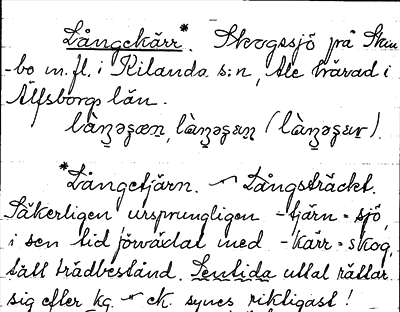 Långekärr*. Skogssjö på Skin
-bo m.fl. i Kilanda s:n, Ale härad i
Älfsborgs län.
là̀ŋəʂæn, làŋəʂɛn (làŋəʂɛr).
*Långetjärn. ~ Långsträckt.
Säkerligen ursprungligen -tjärn = sjö,
i sen tid förväxlat med -kärr = skog,
tätt trädbestånd. Sentida uttal rättar
sig efter kg. ~ ck. synes riktigast!